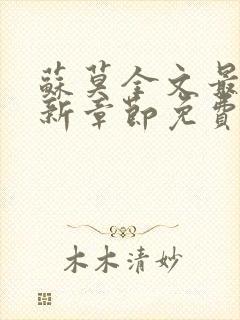 蘇莫全文最
新章節免費
木木清妙